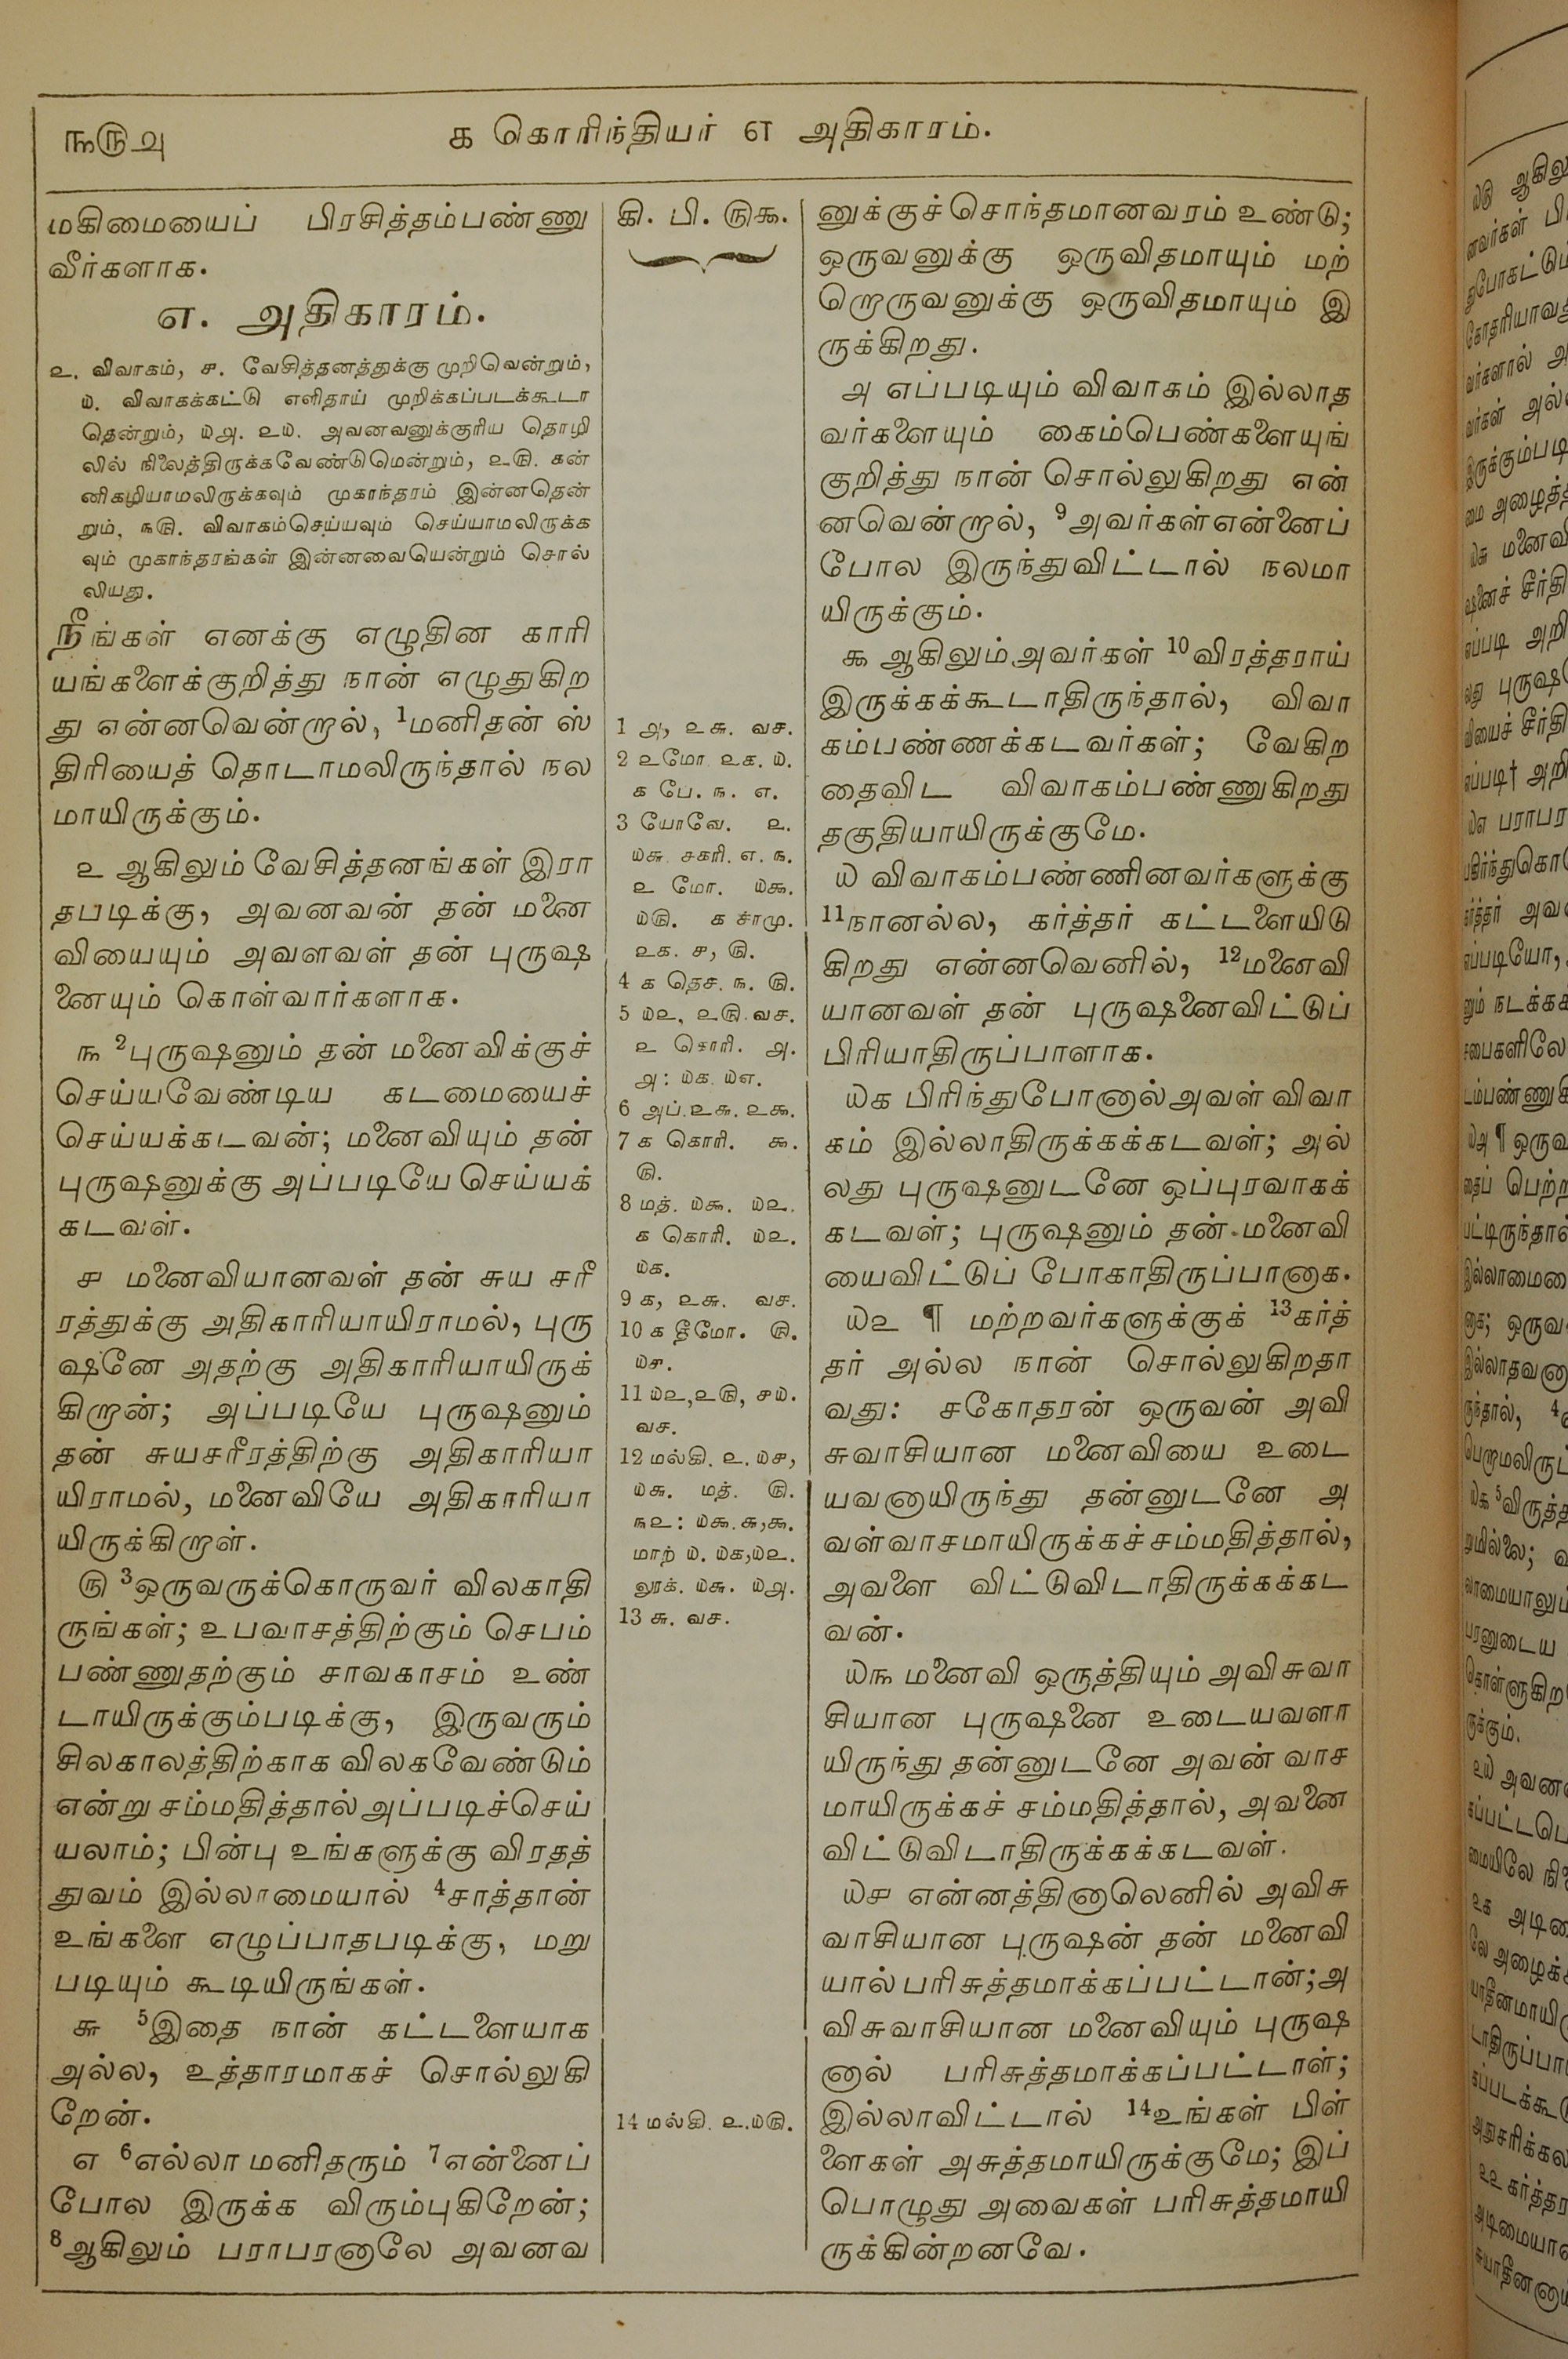 ௩௫௮
௧ கொரிந்தியர் ௭ அதிகாரம்.
மகிமையைப் பிரசித்தம்பண்ணு
வீர்களாக.
௭. அதிகாரம்.
௨. விவாகம், ௪. வேசித்தனத்துக்கு முறிவென்றும்,
௰. விவாகக்கட்டு எளிதாய் முறிக்கப்படக்கூடா
தென்றும், ௰௮. ௨௰. அவனவனுக்குரிய தொழி
லில் நிலைத்திருக்கவேண்டுமென்றும், ௨௫. கன்
னிகழியாமலிருக்கவும் முகாந்தரம் இன்னதென்
றும், ௩௫. விவாகம்செய்யவும் செய்யாமலிருக்க
வும் முகாந்தரங்கள் இன்னவையென்றும் சொல்
லியது.
நீங்கள் எனக்கு எழுதின காரி
யங்களைக்குறித்து நான் எழுதுகிற
து என்னவென்றால், 1மனிதன் ஸ்
திரியைத் தொடாமலிருந்தால் நல
மாயிருக்கும்.
௨ ஆகிலும் வேசித்தனங்கள் இரா
தபடிக்கு, அவனவன் தன் மனை
வியையும் அவளவள் தன் புருஷ
னையும் கொள்வார்களாக.
௩ 2புருஷனும் தன் மனைவிக்குச்
செய்யவேண்டிய கடமையைச்
செய்யக்கடவன்; மனைவியும் தன்
புருஷனுக்கு அப்படியே செய்யக்
கடவள்.
௪ மனைவியானவள் தன் சுய சரீ
ரத்துக்கு அதிகாரியாயிராமல், புரு
ஷனே அதற்கு அதிகாரியாயிருக்
கிறான்; அப்படியே புருஷனும்
தன் சுயசரீரத்திற்கு அதிகாரியா
யிராமல், மனைவியே அதிகாரியா
யிருக்கிறாள்.
௫ 3ஒருவருக்கொருவர் விலகாதி
ருங்கள்; உபவாசத்திற்கும் செபம்
பண்ணுதற்கும் சாவகாசம் உண்
டாயிருக்கும்படிக்கு, இருவரும்
சிலகாலத்திற்காக விலகவேண்டும்
என்று சம்மதித்தால் அப்படிச்செய்
யலாம்; பின்பு உங்களுக்கு விரதத்
துவம் இல்லாமையால் 4சாத்தான்
உங்களை எழுப்பாதபடிக்கு, மறு
படியும் கூடியிருங்கள்.
௬ 5இதை நான் கட்டளையாக
அல்ல, உத்தாரமாகச் சொல்லுகி
றேன்.
௭ 6எல்லா மனிதரும் 7என்னைப்
போல இருக்க விரும்புகிறேன்;
8ஆகிலும் பராபரனாலே அவனவ
கி. பி. ௫௯.
1 ௮, ௨௬. வச.
2 ௨மோ ௨௧. ௰.
௧ பே. ௩. ௭.
3 யோவே. ௨.
௰௬. சகரி. ௭. ௩.
௨ மோ. ௰௯.
௰௫. ௧ சாமு.
௨௧. ௪, ௫.
4 ௧ தெச. ௩. ௫.
5 ௰௨, ௨௫. வச.
௨ கொரி. ௮.
௮: ௰௧. ௰௭.
6 அப். ௨௬. ௨௯.
7 ௧ கொரி. ௯.
௫.
8 மத். ௰௯. ௰௨.
௧ கொரி. ௰௨.
௰௧.
9 ௧, ௨௬. வச.
10 ௧ தீமோ. ௫.
௰௪.
11 ௰௨,௨௫, ௪௰.
வச.
12 மல்கி. ௨. ௰௪,
௰௬. மத். ௫.
௩௨: ௰௯.௬,௯.
மாற் ௰. ௰௧,௰௨.
லூக். ௰௬. ௰௮.
13 ௬. வச.
14 மல்கி. ௨.௰௫.
னுக்குச்சொந்தமானவரம் உண்டு;
ஒருவனுக்கு ஒருவிதமாயும் மற்
றொருவனுக்கு ஒருவிதமாயும் இ
ருக்கிறது.
௮ எப்படியும் விவாகம் இல்லாத
வர்களையும் கைம்பெண்களையுங்
குறித்து நான் சொல்லுகிறது என்
னவென்றால், 9அவர்கள்என்னைப்
போல இருந்துவிட்டால் நலமா
யிருக்கும்.
௯ ஆகிலும் அவர்கள் 10விரத்தராய்
இருக்கக்கூடாதிருந்தால், விவா
கம்பண்ணக்கடவர்கள்; வேகிற
தைவிட விவாகம்பண்ணுகிறது
தகுதியாயிருக்குமே.
௰ விவாகம்பண்ணினவர்களுக்கு
11நானல்ல, கர்த்தர் கட்டளையிடு
கிறது என்னவெனில், 12மனைவி
யானவள் தன் புருஷனைவிட்டுப்
பிரியாதிருப்பாளாக.
௰௧ பிரிந்துபோனால் அவள் விவா
கம் இல்லாதிருக்கக்கடவள்; அல்
லது புருஷனுடனே ஒப்புரவாகக்
கடவள்; புருஷனும் தன் மனைவி
யைவிட்டுப் போகாதிருப்பானாக.
௰௨ ¶ மற்றவர்களுக்குக் 13கர்த்
தர் அல்ல நான் சொல்லுகிறதா
வது: சகோதரன் ஒருவன் அவி
சுவாசியான மனைவியை உடை
யவனாயிருந்து தன்னுடனே அ
வள்வாசமாயிருக்கச்சம்மதித்தால்,
அவளை விட்டுவிடாதிருக்கக்கட
வன்.
௰௩ மனைவி ஒருத்தியும் அவிசுவா
சியான புருஷனை உடையவளா
யிருந்து தன்னுடனே அவன் வாச
மாயிருக்கச் சம்மதித்தால், அவனை
விட்டுவிடாதிருக்கக்கடவள்.
௰௪ என்னத்தினாலெனில் அவிசு
வாசியான புருஷன் தன் மனைவி
யால் பரிசுத்தமாக்கப்பட்டான்;அ
விசுவாசியான மனைவியும் புருஷ
னால் பரிசுத்தமாக்கப்பட்டாள்;
இல்லாவிட்டால் 14உங்கள் பிள்
ளைகள் அசுத்தமாயிருக்குமே; இப்
பொழுது அவைகள் பரிசுத்தமாயி
ருக்கின்றனவே.